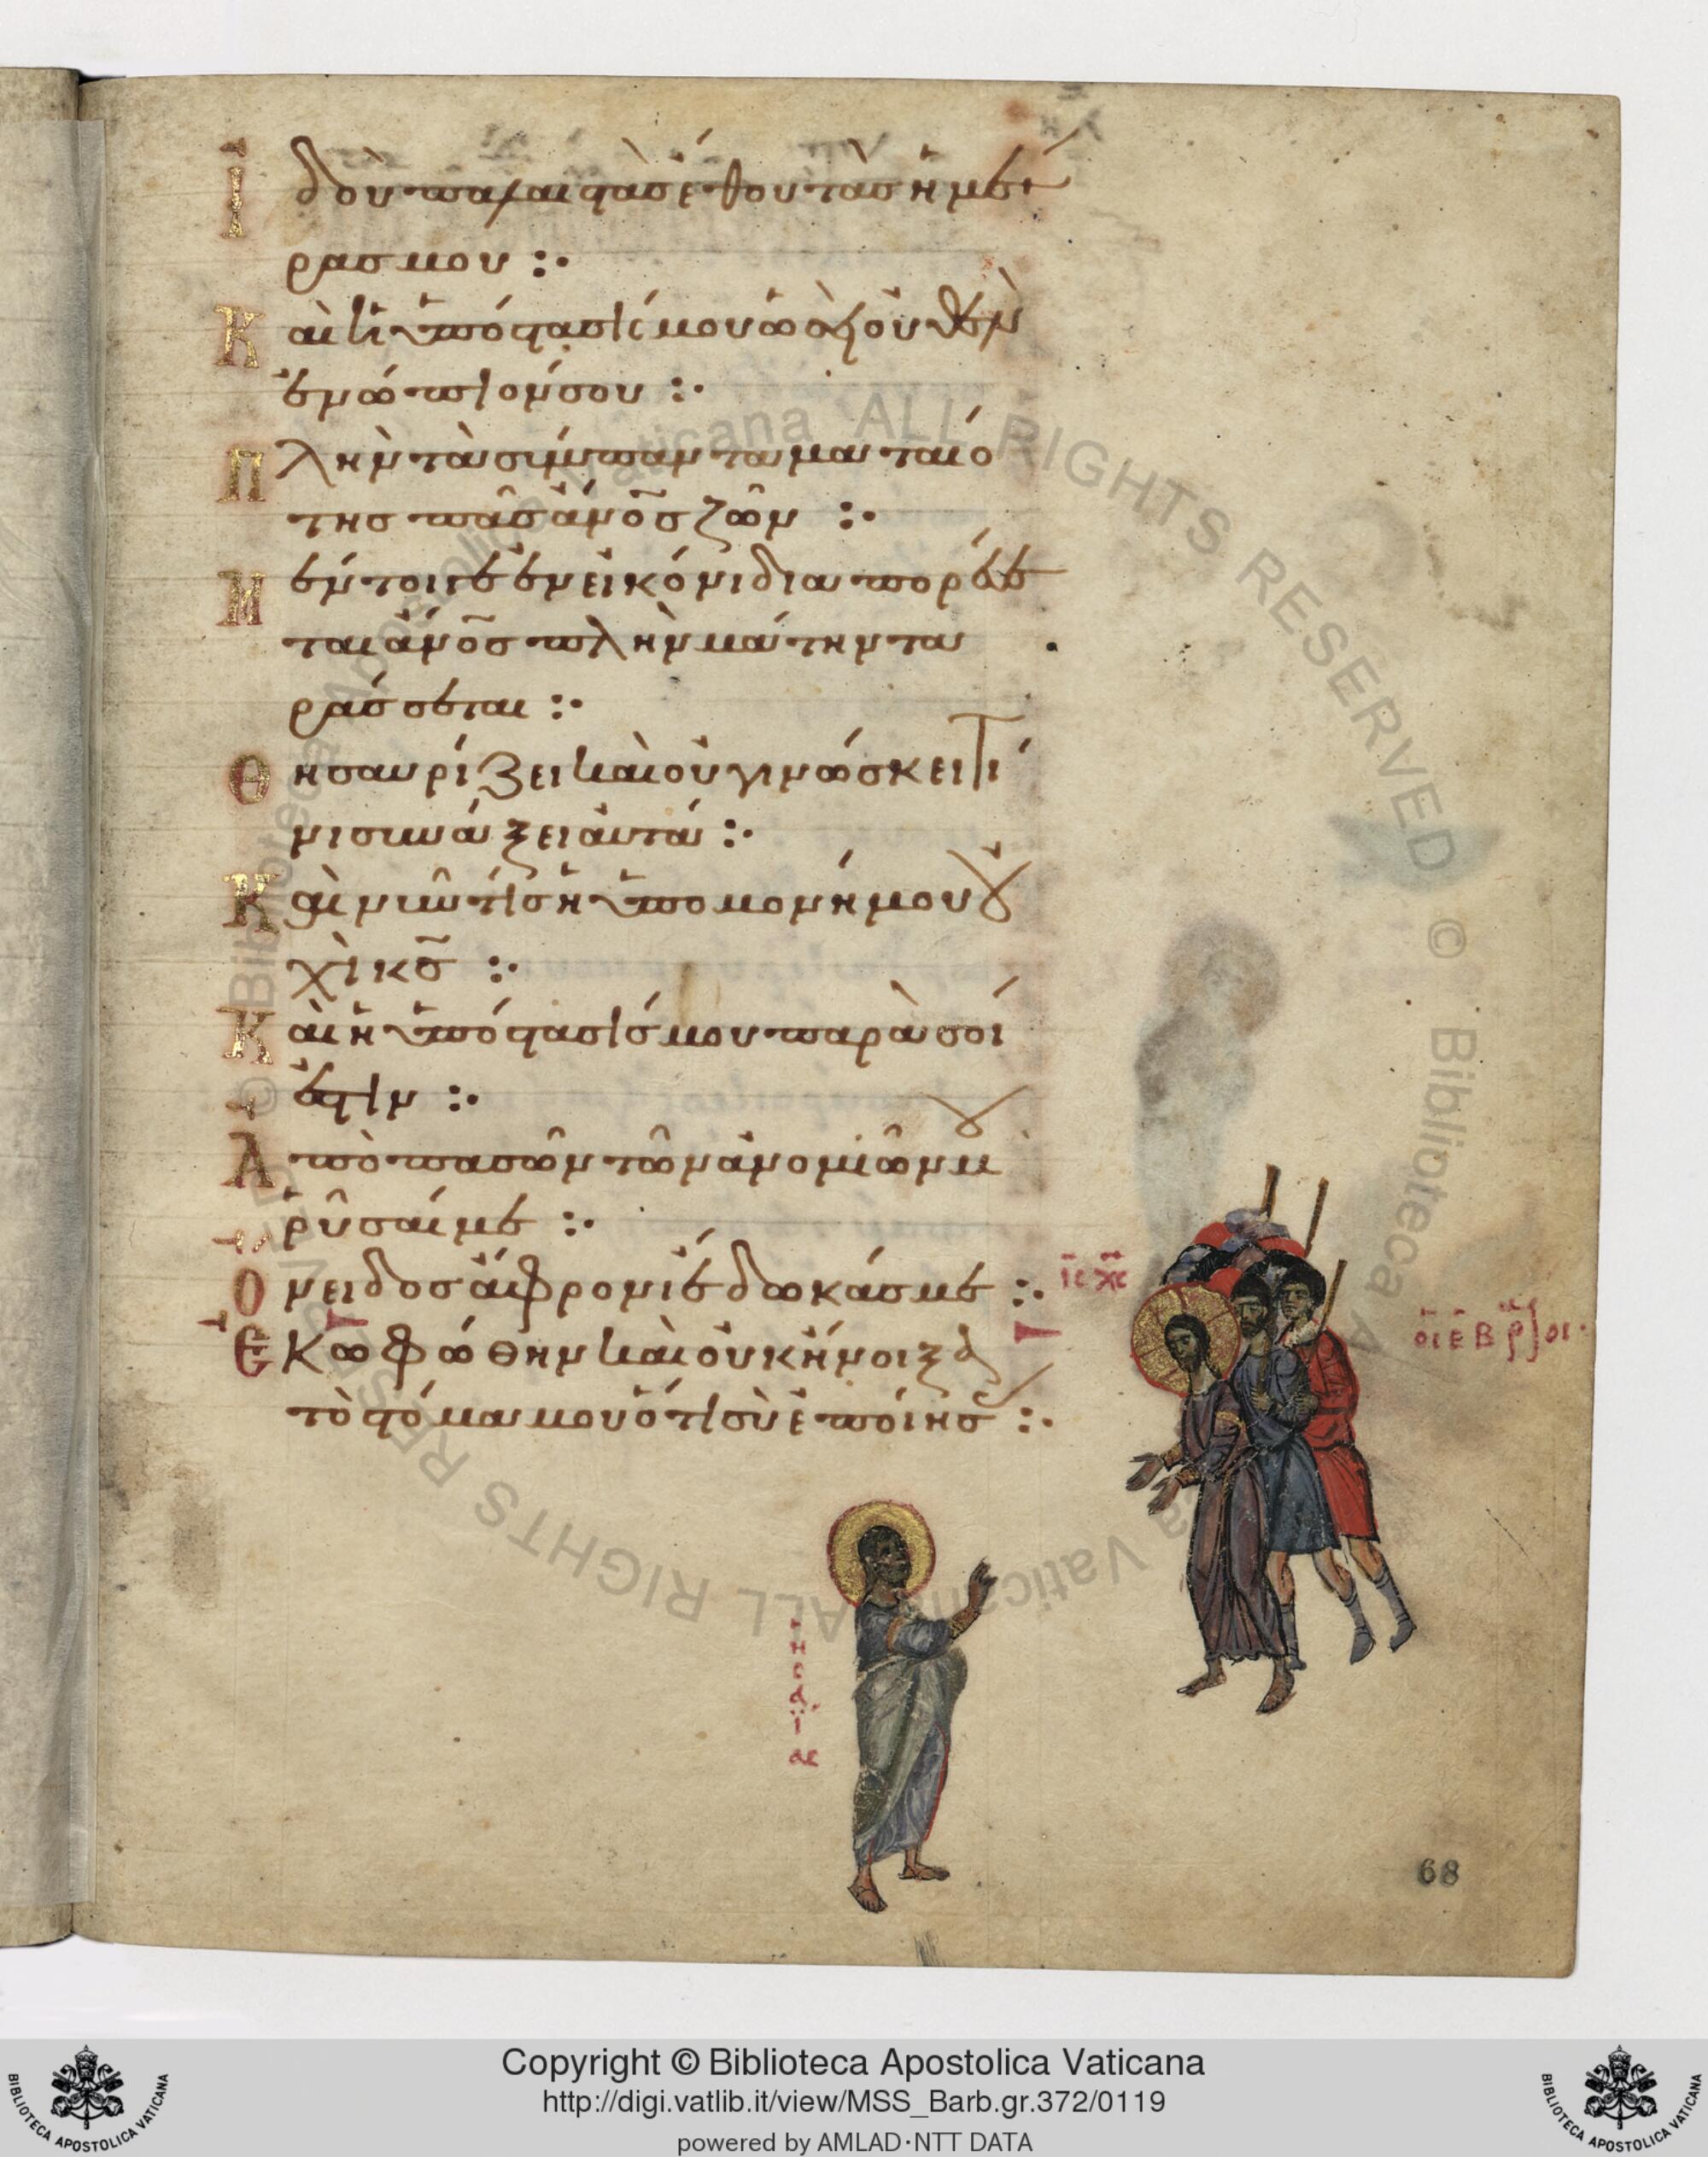 Ἰδοὺ παλαιστὰς ἔθου τὰς ἡμέ
ρας μου :·
Καὶ ἡ ὑπόστασίς μου ὡσεὶ οὐθὲν
ἐνώπιόν σου :·
Πλὴν τὰ σύμπαντα ματαιό
της πᾶς ἄνο̅ς ζῶν :·
Μέντοιγε ἐν εἰκόνι διαπορεύε
ται ἄνο̅ς πλὴν μάτην τα
ράσσεται :·
Θησαυρίζει καὶ οὐ γινώσκει τί
νι συνάξει αὐτά :·
Καὶ νῦν τίς ἡ ὑπομονή μου οὐ
χὶ κ̅ς :·
Καὶ ἡ ὑπόστασίς μου παρὰ σοί
ἐστιν :·
Ἀπὸ πασῶν τῶν ἀνομιῶν μου
ῥῦσαί με :·
Ὄνειδος ἄφρονι ἔδωκάς με :·
Ἐκωφώθην καὶ οὐκ ἤνοιξα
τὸ στόμα μου ὅτι σὺ ἐποίησας :·
ι̅ς χ̅ς
οἱ ἑβραῖοι·
ησαΐας
68
© Biblioteca Apostolica Vaticana ALL RIGHTS RESERVED © Biblioteca Apostolica Vaticana ALL RIGHTS RESERVED
BIBLIOTECA APOSTOLICA VATICANA
Copyright © Biblioteca Apostolica Vaticana
http://digi.vatlib.it/view/MSS_Barb.gr.372/0119
powered by AMLAD·NTT DATA
BIBLIOTECA APOSTOLICA VATICANA